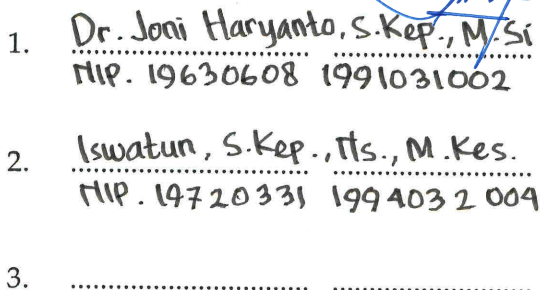 1. Dr. Joni Haryanto, S.Kep., M.Si
NIP. 19630608 1991031002
2. Iswatun, S.Kep., Ns., M.Kes.
NIP. 19720331 199403 2 004
3. ........................................ ........................................